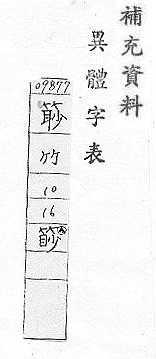 補充資料
異體字表
09877
竹
10
16
篎